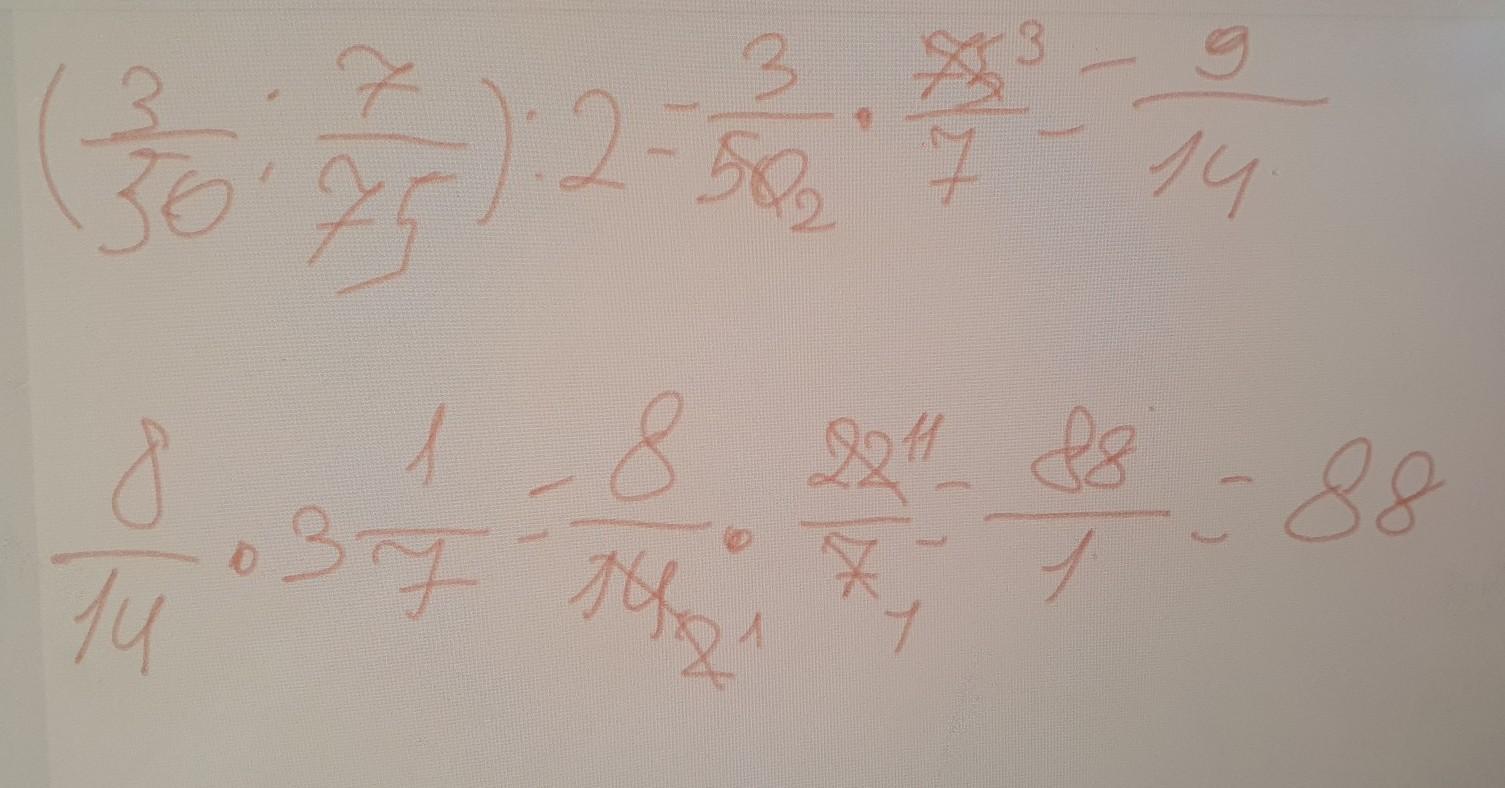 (3/50 : 7/75) : 2 = 3/50₂ · 75³/7 = 9/14
8/14 · 3 1/7 = 8/14₂¹ · 22¹¹/7₁ = 88/1 = 88